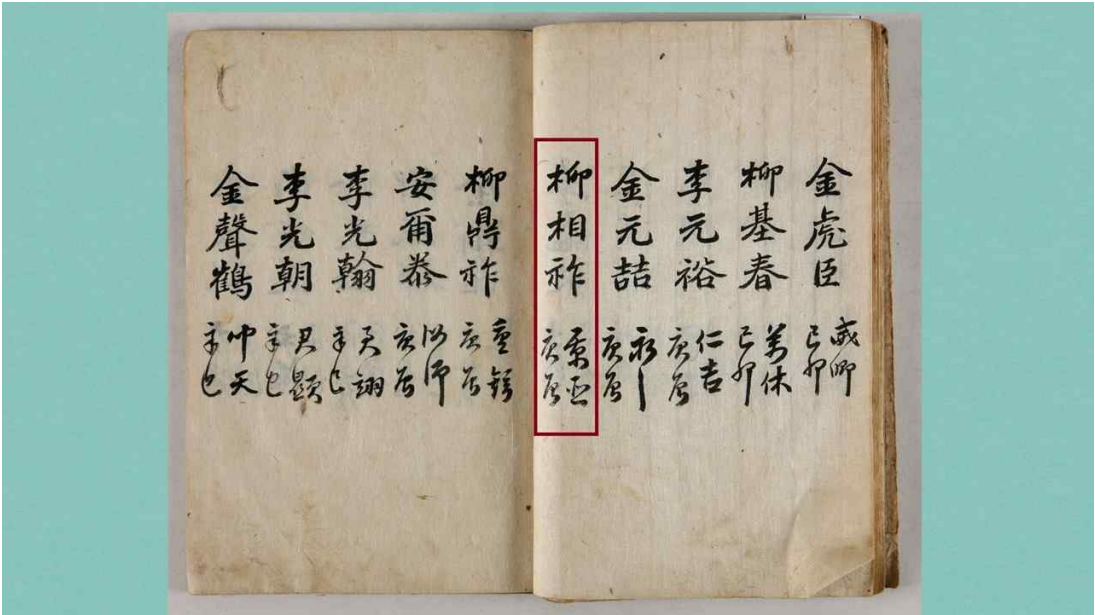 金虎臣 威卿 己卯
柳基春 萬休 己卯
李元裕 仁吉 庚辰
金元喆 永 庚辰
柳相祚 庚辰
柳鼎祚 庚辰
安爾泰 庚辰
李光翰 天翊 辛巳
李光朝 君顯 辛巳
金聲鶴 仲天 辛巳